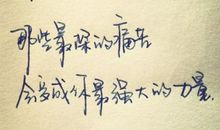 那些最深的痛苦
会变成你最强大的力量.